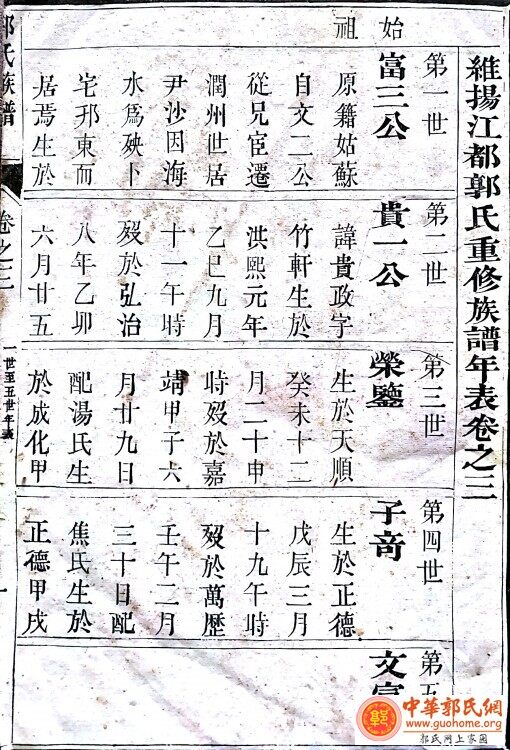 維揚江都郭氏重修族譜年表卷之三
始祖
第一世
富三公
原籍姑蘇
自文二公
從兄宦遷
潤州世居
尹沙因海
水為殃卜
宅邗東而
居焉生於
第二世
貴一公
諱貴政字
竹軒生於
洪熙元年
乙巳九月
十一午時
歿於弘治
八年乙卯
六月廿五
第三世
榮鑒
生於天順
癸未十二
月二十申
時歿於嘉
靖甲子六
月廿九日
配湯氏生
於成化甲
第四世
子奇
生於正德
戊辰三月
十九午時
歿於萬歷
壬午二月
三十日配
焦氏生於
正德甲戌
第五
文
郭氏族譜
卷之三
一世至五世年表
中華郭氏網
www.guohome.org
郭氏网上家园